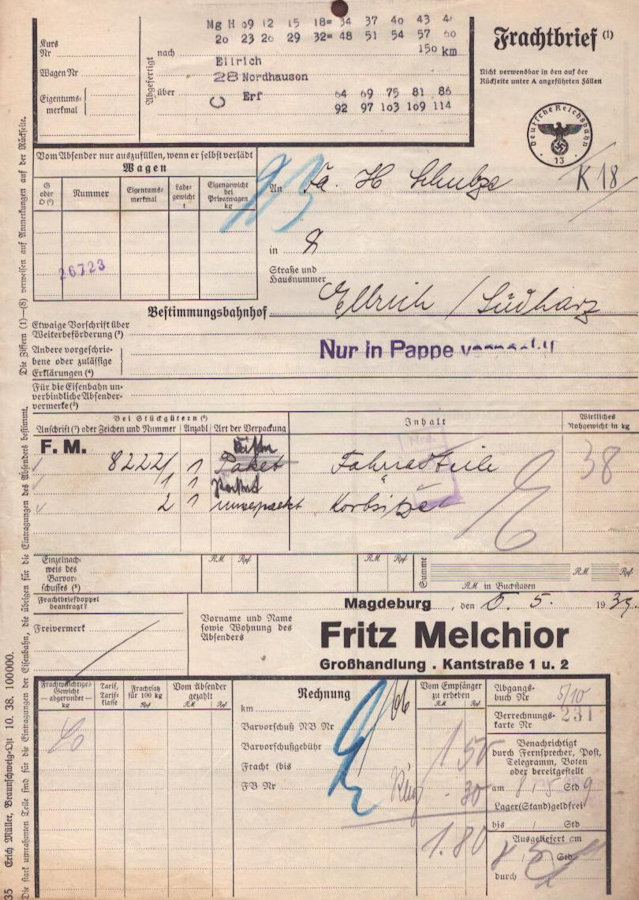 Mg H 09 12 15 18= 34 37 40 43
20 23 26 29 32= 48 51 54 57 60
150 km
Kurs
Nr
Wagen Nr
Eigentums-
merkmal
Abgefertigt
nach
über
Ellrich
28 Nordhausen
Erf
64 69 75 81 86
92 97 103 109 114
Frachtbrief (1)
Nicht verwendbar in den auf der
Rückseite unter A angeführten Fällen
Deutsche Reichsbahn
13
Vom Absender nur auszufüllen, wenn er selbst verlädt
Wagen
G
oder
O (2)
Nummer
Eigentums-
merkmal
Lade-
gewicht
t
Eigengewicht
bei
Privatwagen
kg
26723
An Fa. H Schulze
K 18
in
Straße und
Hausnummer
Bestimmungsbahnhof
Ellrich / Südharz
Etwaige Vorschrift über
Weiterbeförderung (3)
Nur in Pappe
Andere vorgeschrie-
bene oder zulässige
Erklärungen (4)
Für die Eisenbahn un-
verbindliche Absender-
vermerke (5)
Bei Stückgütern (6)
Anschrift (7) oder Zeichen und Nummer
Anzahl
Art der Verpackung
Inhalt
Wirkliches
Rohgewicht in kg
F. M. 8222/1 1 Paket Fahrradteile 38
1 1 "
2 1 unverpackt Korbsitze
Einzelnach-
weis des
Barvor-
schusses (8)
RM Rpf
RM Rpf
Summe
RM Rpf
RM in Buchstaben
Frachtbriefdoppel
beantragt?
Freivermerk
Magdeburg, den 5. 5. 1939.
Vorname und Name
sowie Wohnung des
Absenders
Fritz Melchior
Großhandlung . Kantstraße 1 u. 2
Frachtpflichtiges
Gewicht
- abgerundet -
kg
Tarif,
Tarif-
klasse
Frachtsatz
für 100 kg
Rpf
Vom Absender
gezahlt
RM Rpf
Rechnung
km
Barvorschuß NB Nr
Barvorschußgebühr
Fracht (bis
FB Nr
Vom Empfänger
zu erheben
RM Rpf
1 50
30
1.80
Abgangs-
buch Nr
5/10
Verrechnungs-
karte Nr
231
Benachrichtigt
durch Fernsprecher, Post,
Telegramm, Boten
oder bereitgestellt
am Std 9
Lager(Stand)geldfrei
bis / Std
Ausgeliefert am
Std
durch
Die Ziffern (1)—(8) verweisen auf Anmerkungen auf der Rückseite.
Die stark umrahmten Teile sind für die Eintragungen der Eisenbahn, die übrigen für die Eintragungen des Absenders bestimmt.
35 Erich Müller, Braunschweig 10. 38. 100000.